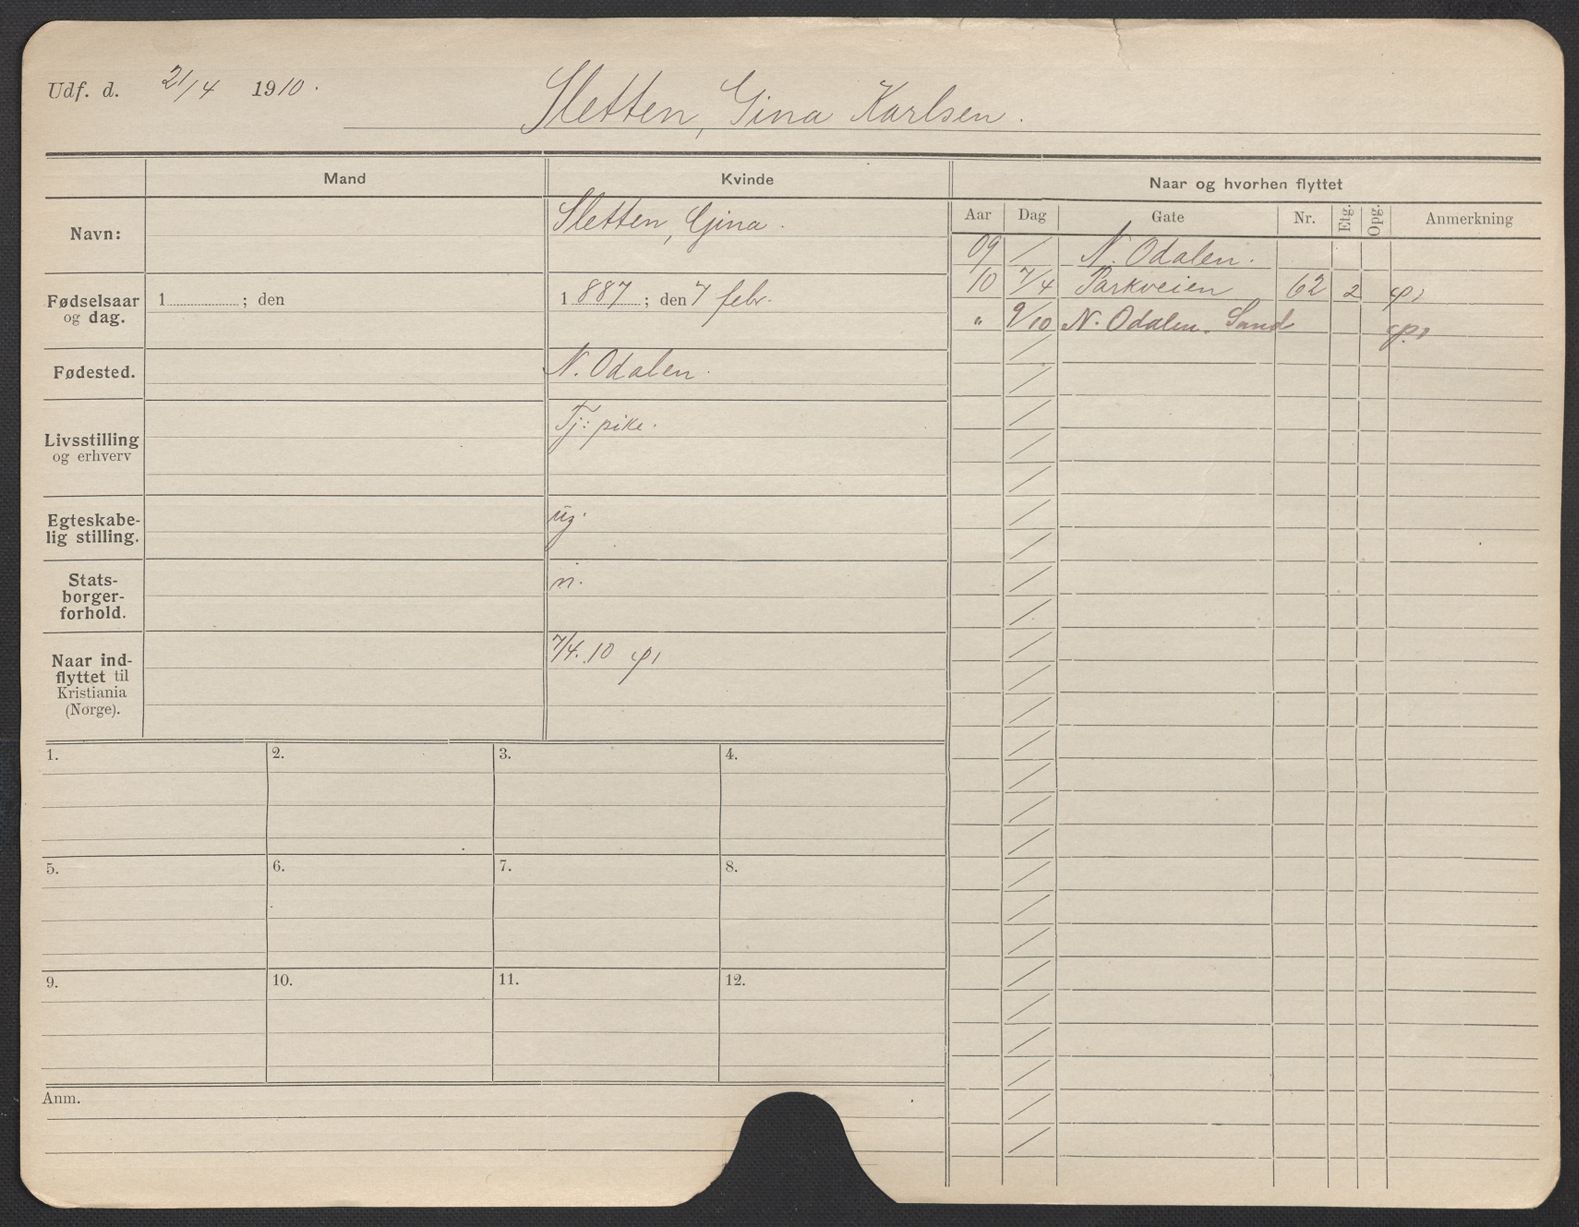 Udf. d. 21/4 1910.
Sletten, Gina Karlsen.
Mand
Kvinde
Naar og hvorhen flyttet
Aar Dag Gate Nr. Etg. Opg. Anmerkning
Navn: Sletten, Gina.
Fødselsaar og dag. 1 ; den
1887 ; den 7 febr.
Fødested. N. Odalen.
Livsstilling og erhverv Tj: pike.
Egteskabe-
lig stilling. ug.
Stats-
borger-
forhold. n.
Naar ind-
flyttet til
Kristiania
(Norge). 7/4.10
09 / N. Odalen.
10 7/4 Parkveien 62 2
" 9/10 N. Odalen. Sand
1. 2. 3. 4.
5. 6. 7. 8.
9. 10. 11. 12.
Anm.